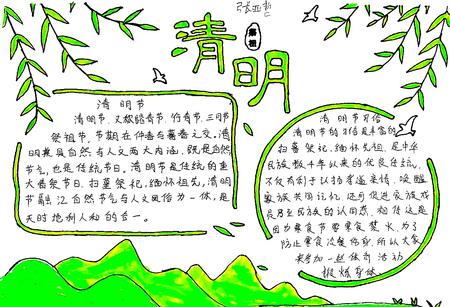 清明
祭祖
清明节
清明节，又称踏青节、行青节、三月节
祭祖节，节期在仲春与暮春之交。清
明兼具自然与人文两大内涵，既是自然
节气，也是传统节日。清明节是传统的重
大春祭节日，扫墓祭祀、缅怀祖先，清明
节融汇自然节气与人文风俗为一体，是
天时地利人和的合一。
清明节习俗
清明节的习俗是丰富的
扫墓祭祀、缅怀先祖，是中华
民族数千年以来的优良传统，
不仅有利于弘扬孝道亲情、唤醒
家族共同记忆，还可促进家族成
员乃至民族的认同感。相传这是
因为寒食节要寒食禁火，为了
防止寒食冷餐伤身，所以大家
来参加一些体育活动
锻炼身体。